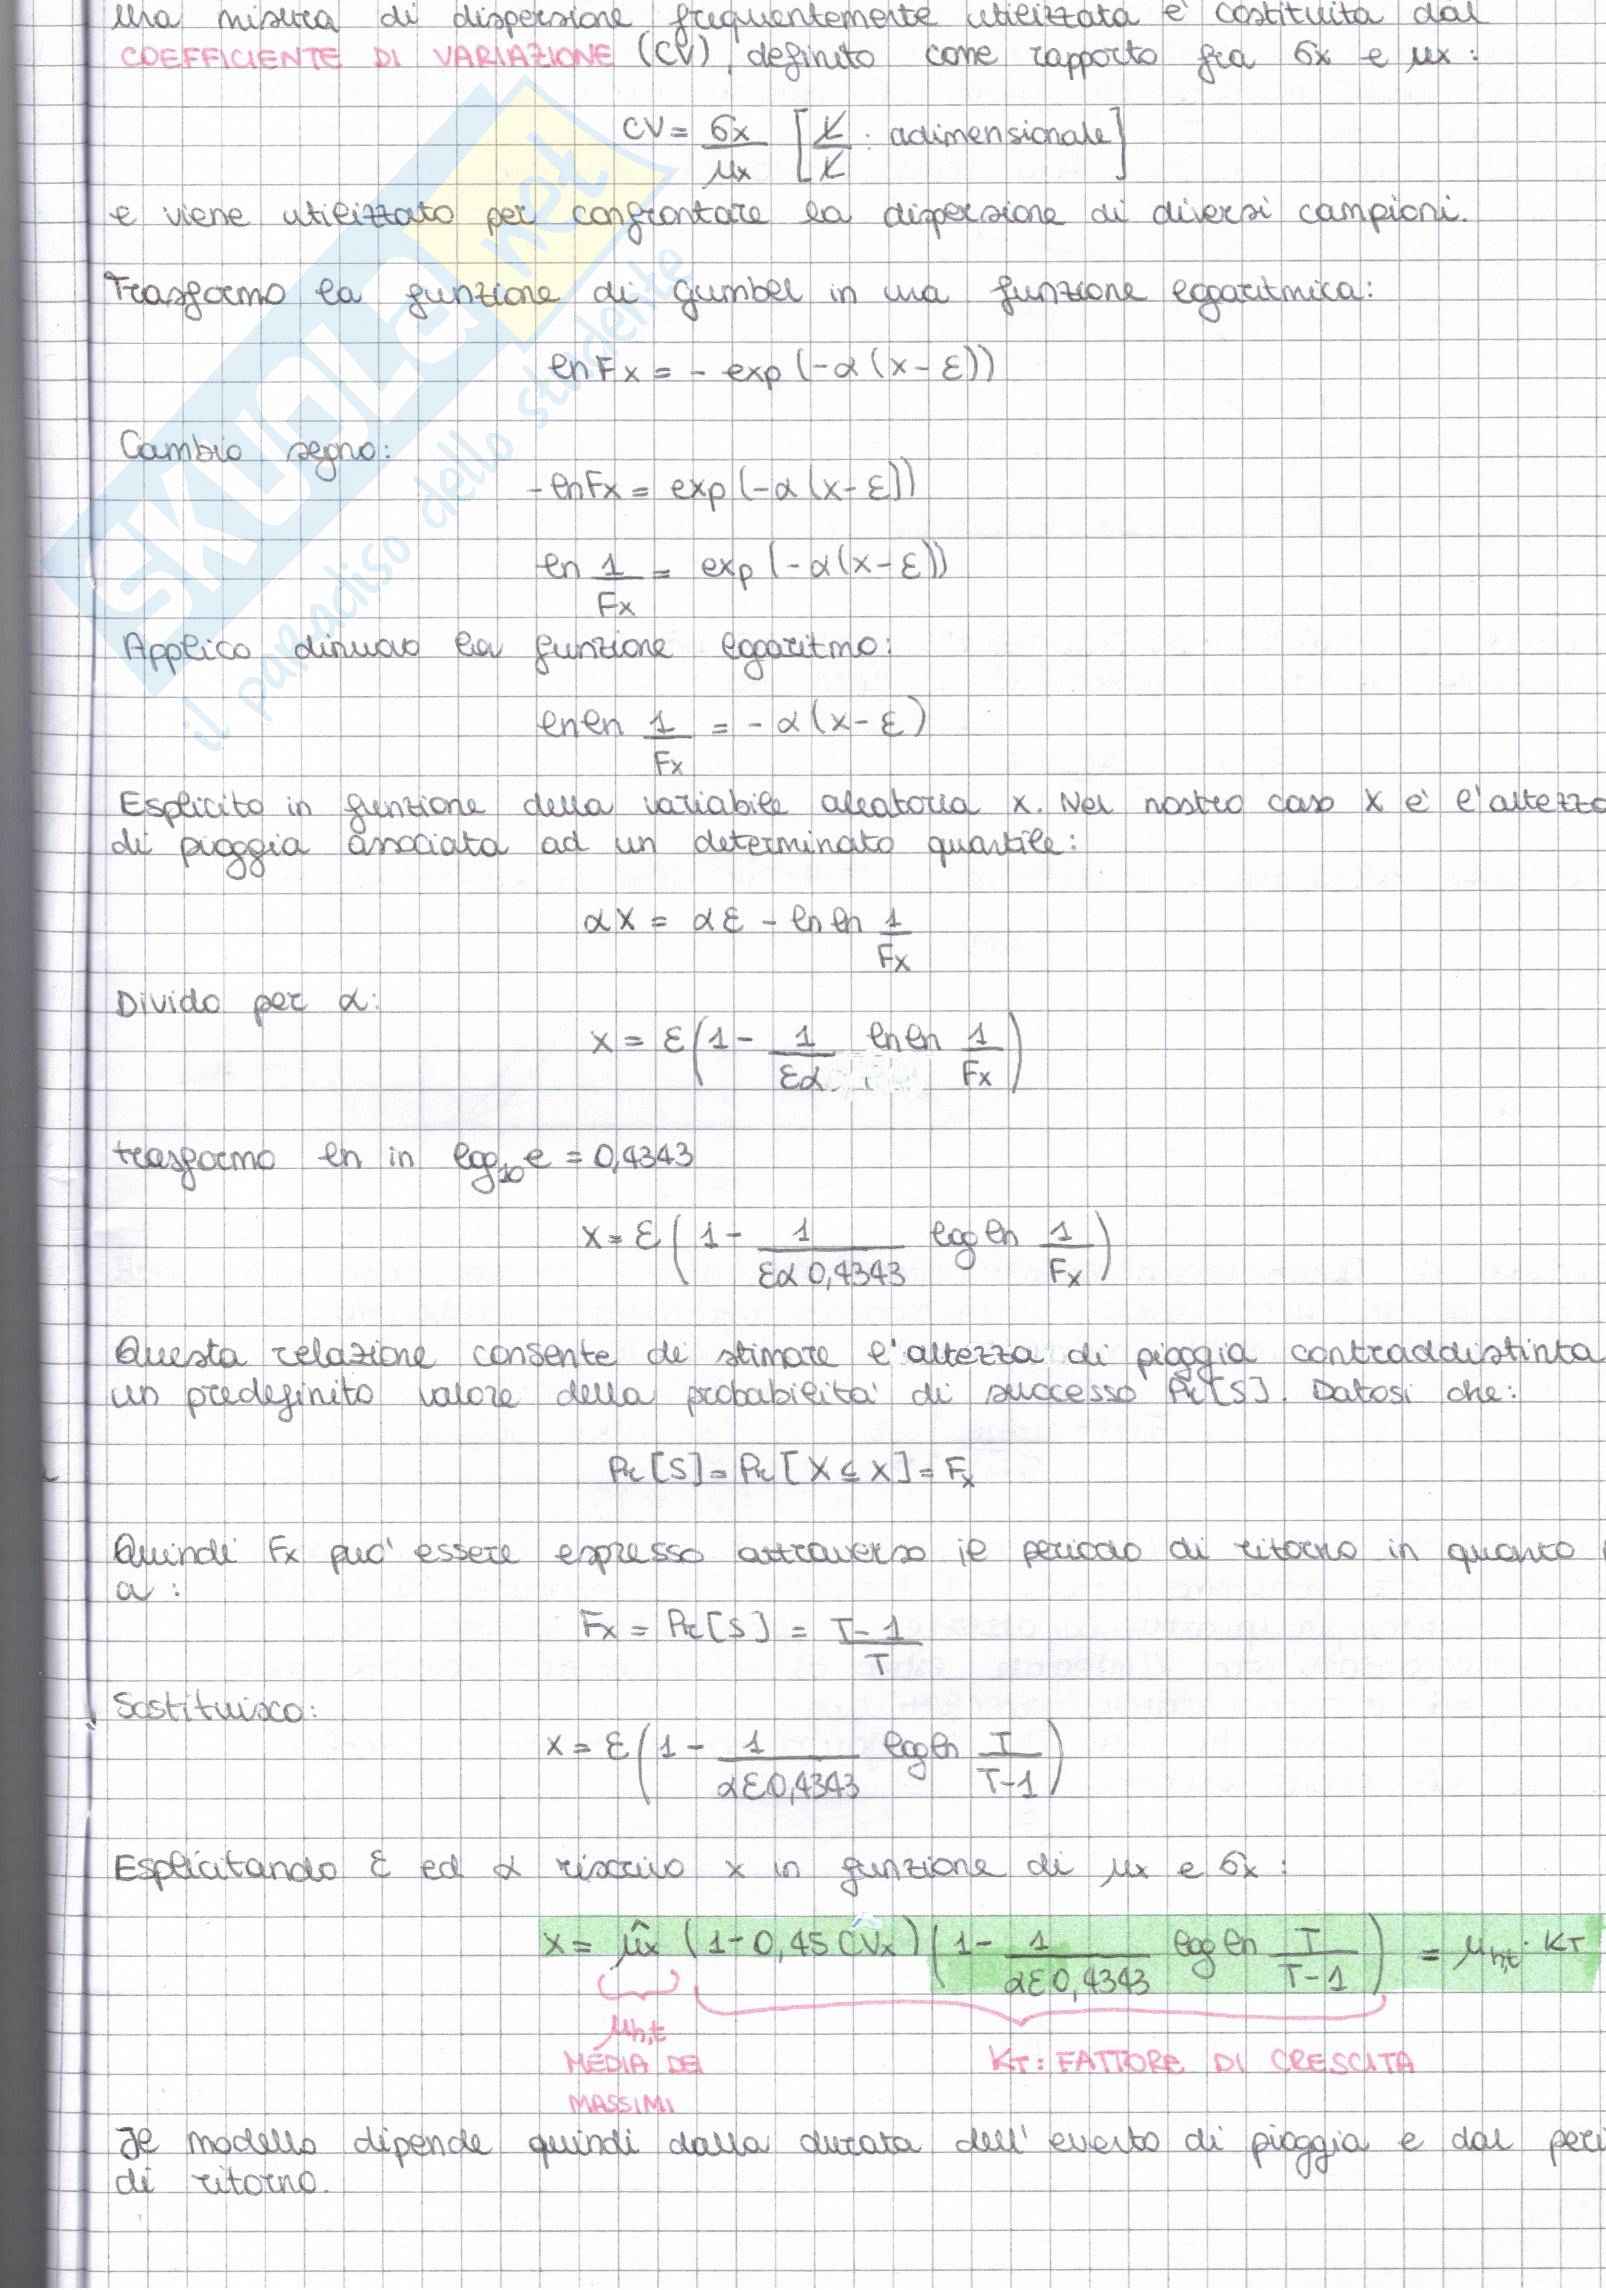 Una misura di dispersione frequentemente utilizzata è costituita dal
COEFFICIENTE DI VARIAZIONE (CV), definito come rapporto fra σx e μx:
CV = σx / μx [L/L : adimensionale]
e viene utilizzato per confrontare la dispersione di diversi campioni.
Trasformo la funzione di gumbel in una funzione logaritmica:
ln Fx = - exp (-α (x - ε))
Cambio segno:
- ln Fx = exp (-α (x - ε))
ln 1/Fx = exp (-α (x - ε))
Applico dinuovo la funzione logaritmo:
ln ln 1/Fx = - α (x - ε)
Esplicito in funzione della variabile aleatoria x. Nel nostro caso X è l'altezza
di pioggia associata ad un determinato quantile:
αX = αε - ln ln 1/Fx
Divido per α:
x = ε (1 - 1/εα ln ln 1/Fx)
trasformo ln in log10 e = 0,4343
x = ε (1 - 1/εα 0,4343 log ln 1/Fx)
Questa relazione consente di stimare l'altezza di pioggia contraddistinta
un predefinito valore della probabilità di successo Pr[S]. Datosi che:
Pr[S] = Pr[X ≤ x] = Fx
Quindi Fx può essere espresso attraverso il periodo di ritorno in quanto
a:
Fx = Pr[S] = T-1/T
Sostituisco:
x = ε (1 - 1/αε0,4343 log ln T/T-1)
Esplicitando ε ed α riscrivo x in funzione di μx e σx:
x = μ̂x (1 - 0,45 ĈVx) (1 - 1/αε0,4343 log ln T/T-1) = μh,t · KT
μh,t
MEDIA DEI
MASSIMI
KT: FATTORE DI CRESCITA
Il modello dipende quindi dalla durata dell'evento di pioggia e dal peri
di ritorno.
SKUOLA.net
il paradiso dello studente